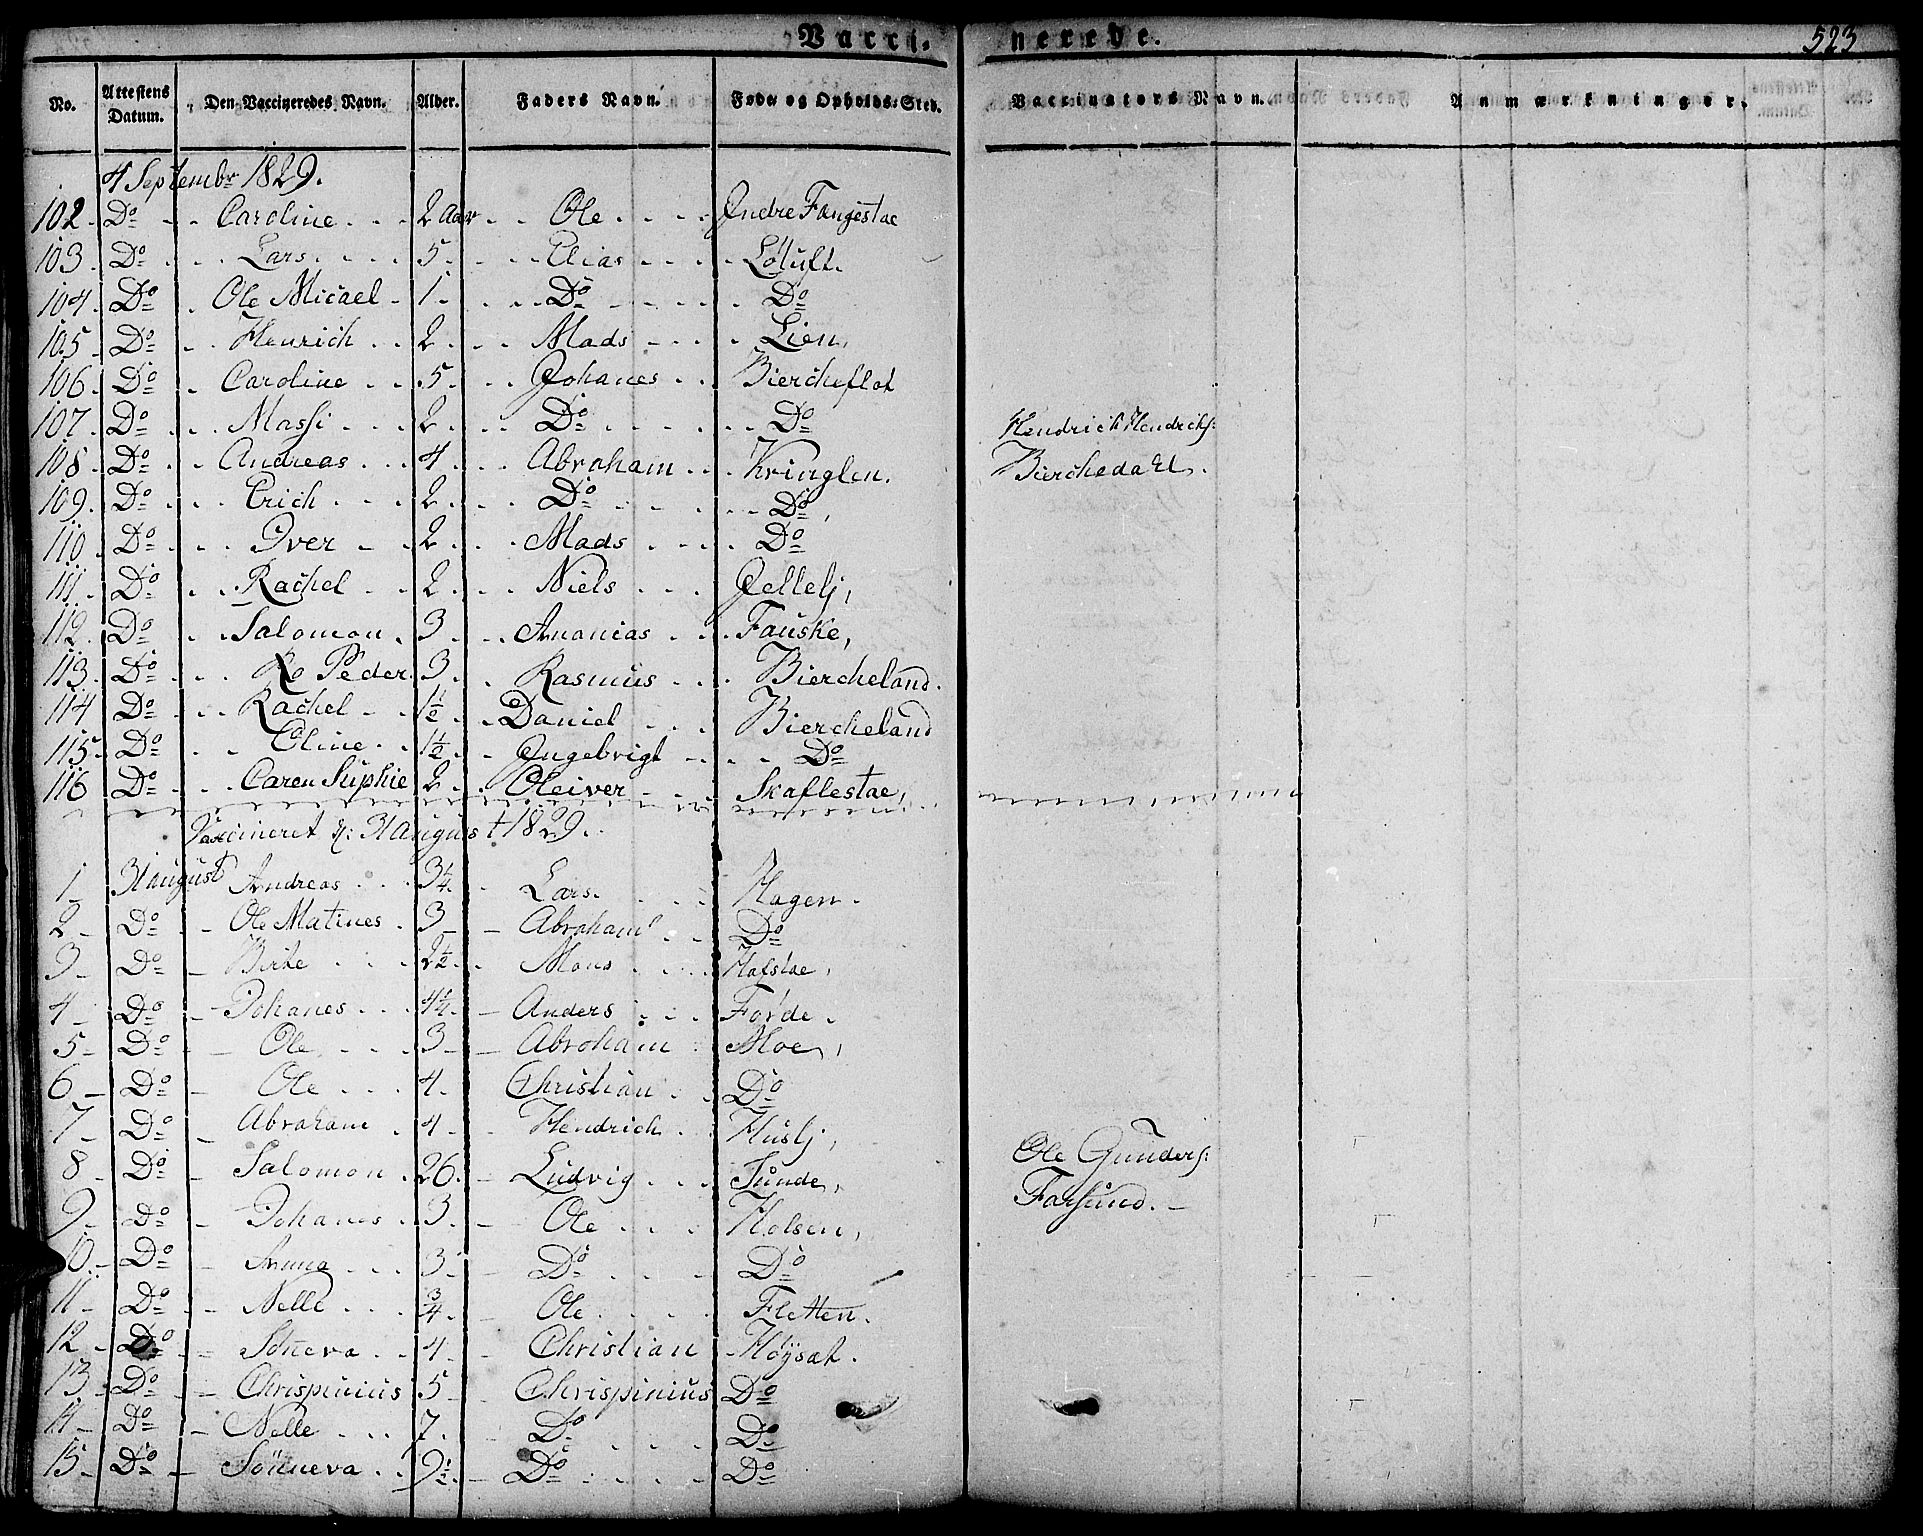 Vacci- nerede. 523
No. Attestens Datum. Den Vaccineredes Navn. Alder. Faders Navn. Føde- og Opholds-Sted. Vaccinators Navn. Anmærkninger.
4 Septembr 1829.
102. Do Caroline 2 Aar Ole Indre Fangestae
103. Do Lars 5 Elias Lotuft.
104. Do Ole Micael 1 Do Do
105 Do Henrich 2 Mads Lien,
106 Do Caroline 5 Johanes Biercheflot
107. Do Massi 2 Do Do Hendrich Hendrichs:
108 Do Andreas 4 Abraham Kringlen. Bierchedall.
109. Do Erich 2 Do Do,
110 Do Iver 2 Mads Do
111 Do Rachel 2 Niels Jellelj,
112. Do Salomon 3 Ananias Fauske,
113. Do Ro Peder 3 Rasmus Biercheland.
114 Do Rachel 1½ Daniel Biercheland
115 Do Eline 1½ Ingebrigt Do
116 Do Caren Suphie 2 Oleiver Skaflestae,
Vaccineret d: 31 August 1829.
1 31 august Andreas 3¼ Lars Hagen.
2 Do Ole Matines 3 Abraham Do
3 Do Birte 2½ Mons Hafstae,
4 Do Johanes 4¼ Anders Førde.
5 Do Ole 3 Abraham Moe,
6 Do Ole 4 Christian Do
7 Do Abraham 4 Hendrich Huslj,
8 Do Salomon 26 Ludvig Sunde, Ole Gunders:
9 Do Johanes 3 Ole Holsen, Farsund.
10 Do Anna 3 Do Do
11 Do Nelle ¾ Ole Fletten.
12 Do Søneva 4 Christian Høysæt.
13 Do Chrispinius 5 Chrispinius Do
14 Do Nelle 7 Do Do
15 Do Sönneva 9½ Do Do